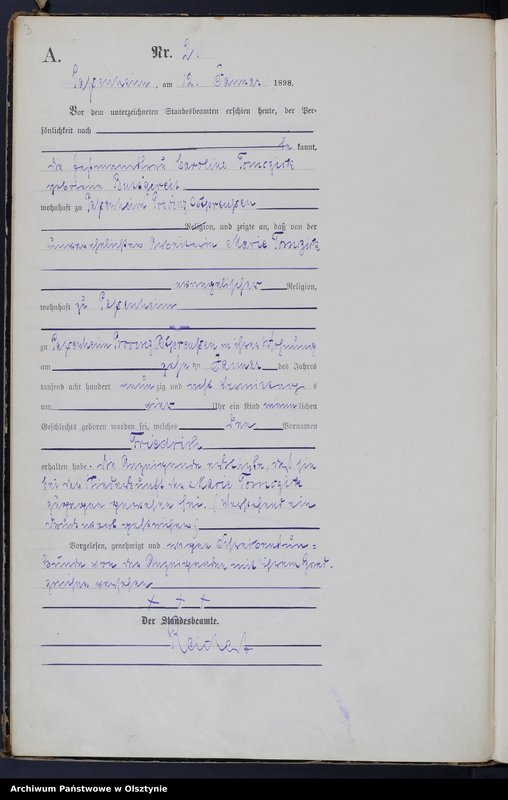 A.
Nr. 2.
am 12. Januar 1898.
Vor dem unterzeichneten Standesbeamten erschien heute, der Per-
sönlichkeit nach
be kannt,
die Caroline Tomczick
geborene
wohnhaft zu Provinz Ostpreußen
Religion, und zeigte an, daß von der
unverehelichten Arbeiterin Marie Tomczick
evangelischer Religion,
wohnhaft zu
zu Provinz Ostpreußen in ihrer Wohnung
am zehn ten Januar des Jahres
tausend acht hundert neun zig und acht Vormittag s
um vier Uhr ein Kind männ lichen
Geschlechts geboren worden sei, welches den Vornamen
Friedrich
erhalten habe. Die Anzeigende erklärte, daß sie
bei der Niederkunft der Marie Tomczick
zugegen gewesen sei. (Vorstehend ein
Druckwort gestrichen.)
Vorgelesen, genehmigt und wegen Schreibensun-
kunde von der Anzeigenden mit ihrem Hand-
zeichen versehen
+ + +
Der Standesbeamte.
Archiwum Państwowe w Olsztynie